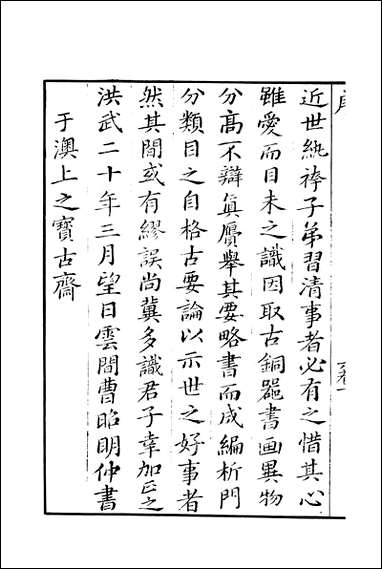 近世紈袴子弟習清事者必有之惜其心
雖愛而目未之識因取古銅器書画異物
分高不辯眞贋舉其要略書而成編析門
分類目之自格古要論以示世之好事者
然其間或有繆誤尚冀多識君子幸加正之
洪武二十年三月望日雲間曹昭明仲書
于澳上之寶古齋